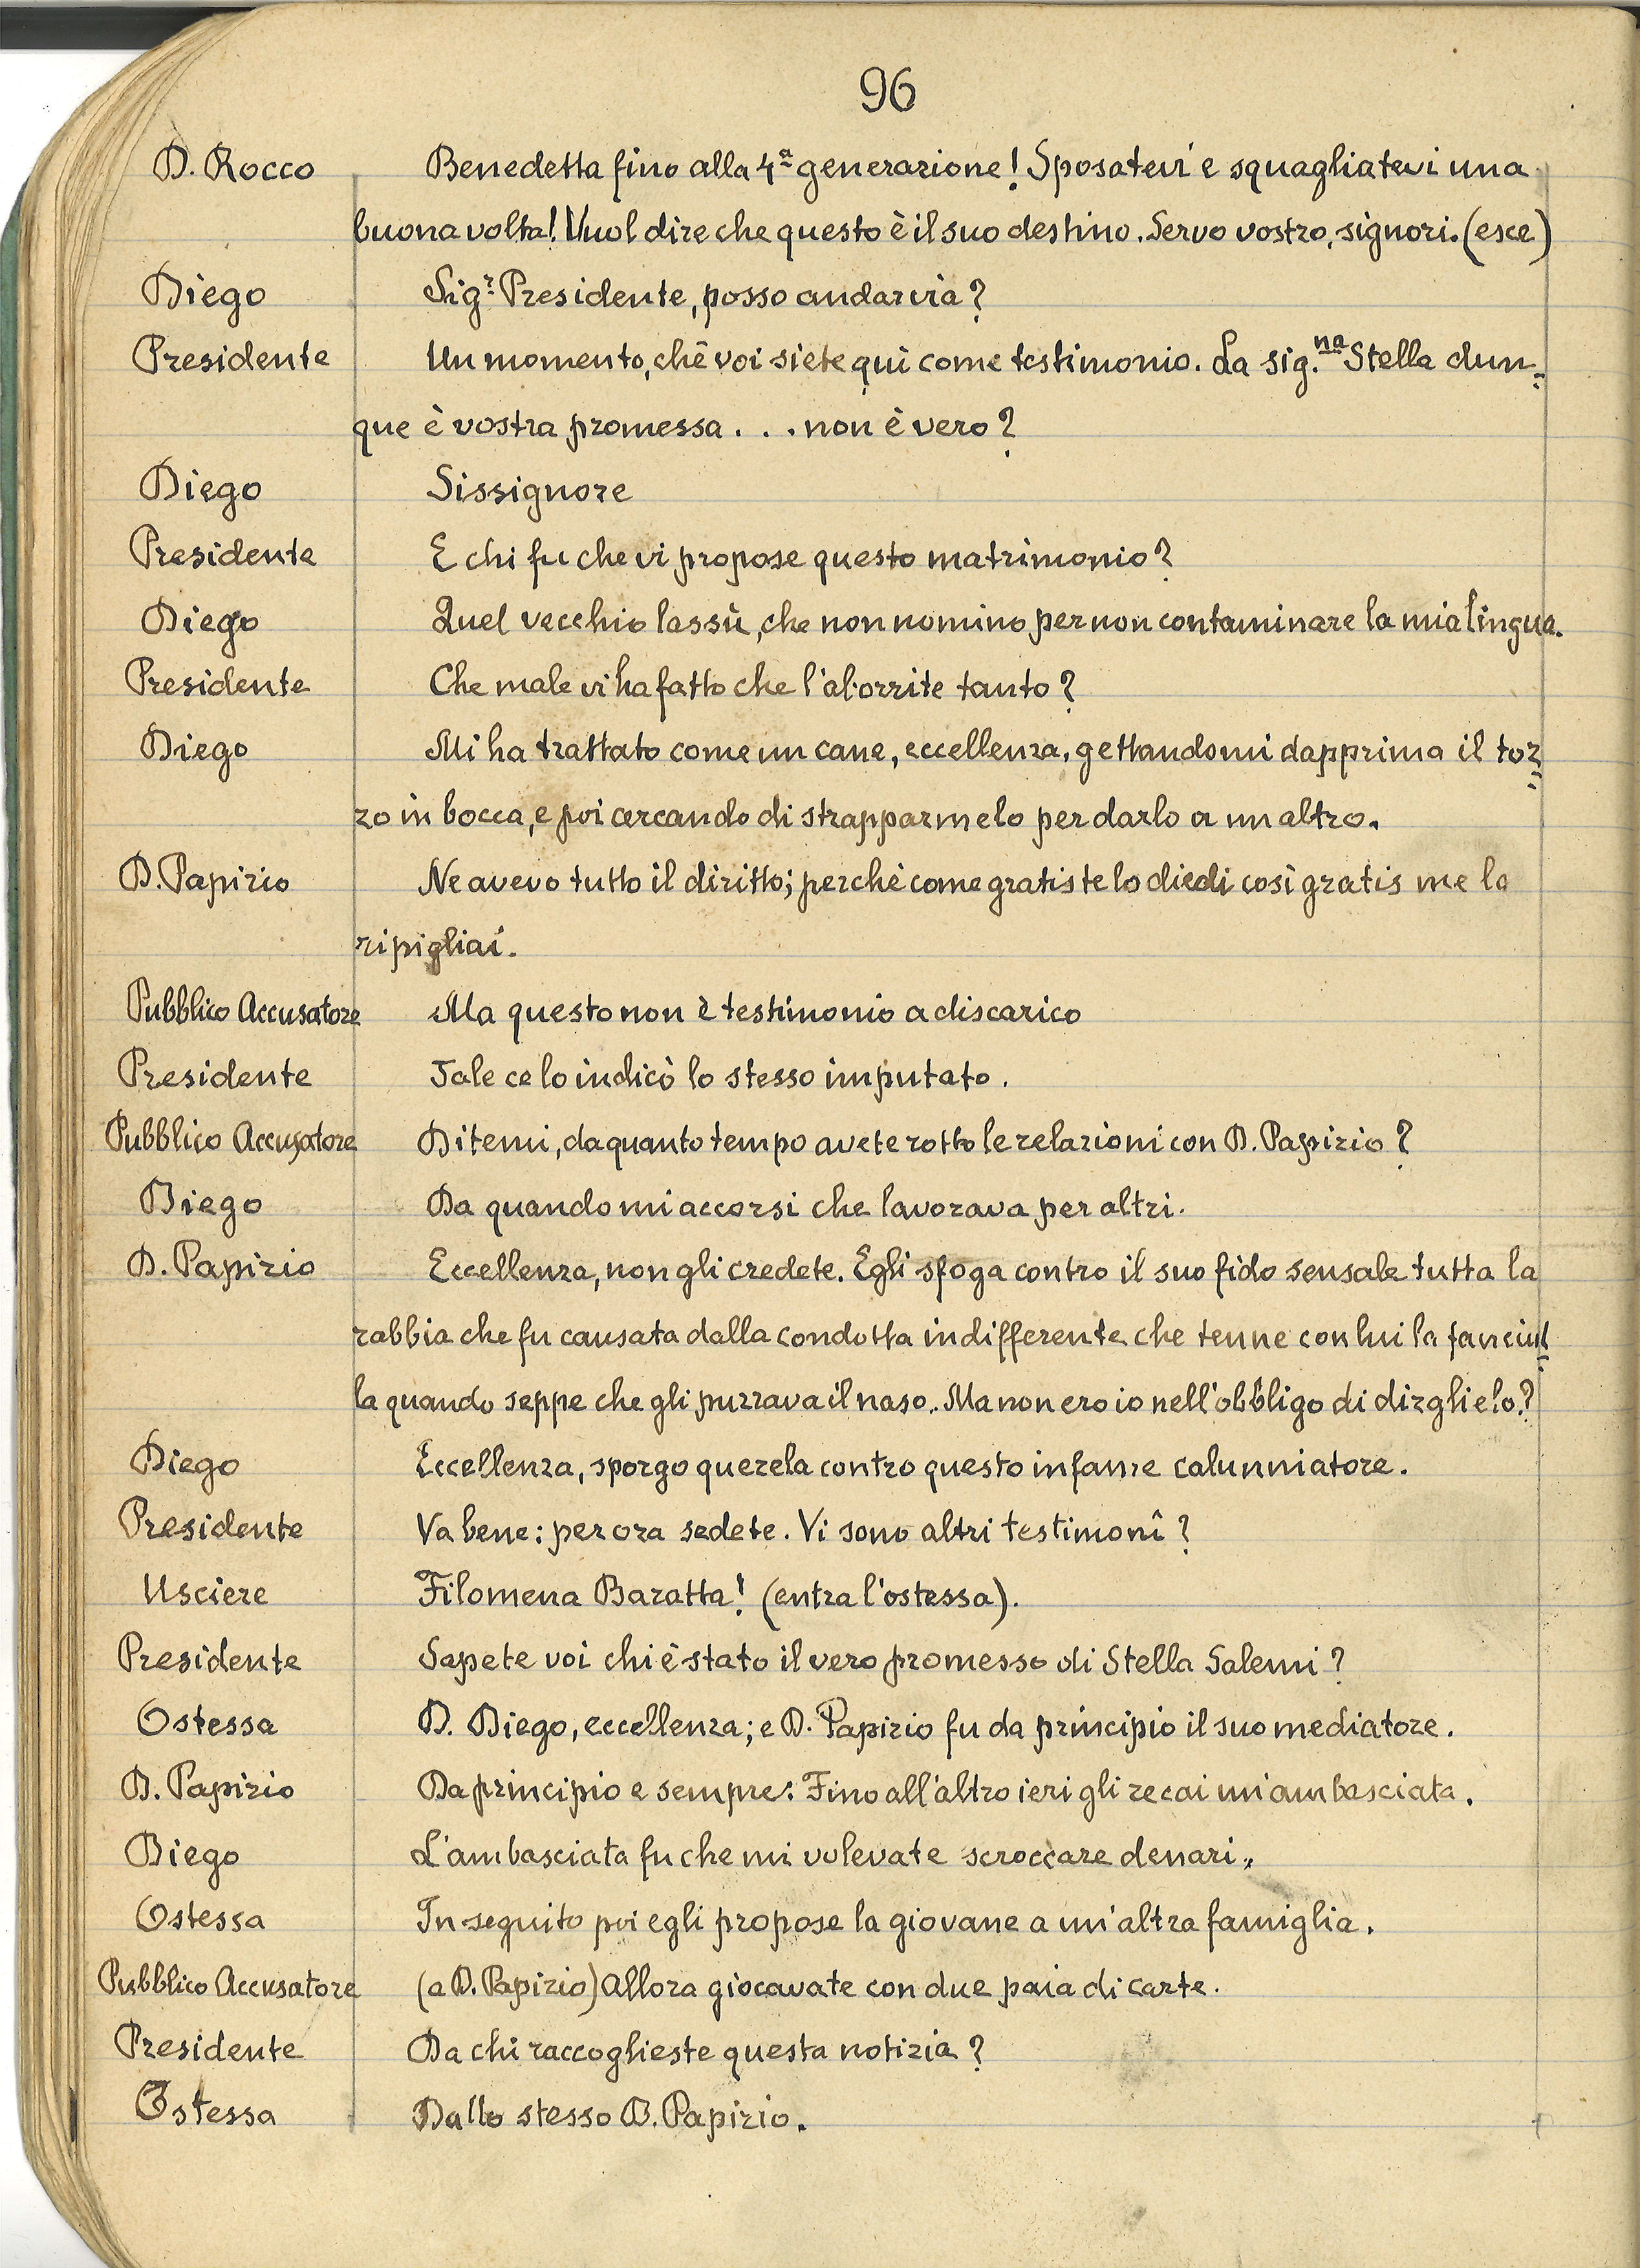 96
D. Rocco Benedetta fino alla 4ª generazione! Sposatevi e squagliatevi una
buona volta! Vuol dire che questo è il suo destino. Servo vostro, signori. (esce)
Diego Sig.r Presidente, posso andar via?
Presidente Un momento, chè voi siete quì come testimonio. La sig.na Stella dun=
que è vostra promessa... non è vero?
Diego Sissignore
Presidente E chi fu che vi propose questo matrimonio?
Diego Quel vecchio lassù, che non nomino per non contaminare la mia lingua.
Presidente Che male vi ha fatto che l'aborrite tanto?
Diego Mi ha trattato come un cane, eccellenza, gettandomi dapprima il toz=
zo in bocca, e poi cercando di strapparmelo per darlo a un altro.
D. Papirio Ne avevo tutto il diritto; perchè come gratis te lo diedi così gratis me lo
ripigliai.
Pubblico Accusatore Ma questo non è testimonio a discarico
Presidente Tale ce lo indicò lo stesso imputato.
Pubblico Accusatore Ditemi, da quanto tempo avete rotto le relazioni con D. Papirio?
Diego Da quando mi accorsi che lavorava per altri.
D. Papirio Eccellenza, non gli credete. Egli sfoga contro il suo fido sensale tutta la
rabbia che fu causata dalla condotta indifferente che tenne con lui la fanciul=
la quando seppe che gli puzzava il naso. Ma non ero io nell'obbligo di dirglielo?
Diego Eccellenza, sporgo querela contro questo infame calunniatore.
Presidente Va bene: per ora sedete. Vi sono altri testimonî?
Usciere Filomena Baratta! (entra l'ostessa).
Presidente Sapete voi chi è stato il vero promesso di Stella Salemi?
Ostessa D. Diego, eccellenza; e D. Papirio fu da principio il suo mediatore.
D. Papirio Da principio e sempre: Fino all'altro ieri gli recai un'ambasciata.
Diego L'ambasciata fu che mi volevate scroccare denari.
Ostessa In seguito poi egli propose la giovane a un'altra famiglia.
Pubblico Accusatore (a D. Papirio) Allora giocavate con due paia di carte.
Presidente Da chi raccoglieste questa notizia?
Ostessa Dallo stesso D. Papirio.